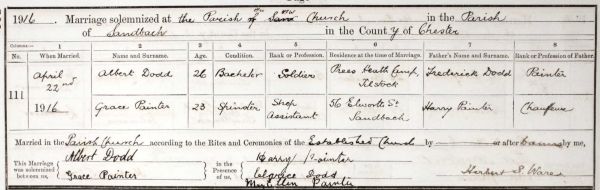 1916. Marriage solemnized at the Parish Church in the Parish
of Sandbach in the County of Chester
Columns:— 1 2 3 4 5 6 7 8
No. When Married. Name and Surname. Age. Condition. Rank or Profession. Residence at the time of Marriage. Father's Name and Surname. Rank or Profession of Father.
111
April 22nd Albert Dodd 26 Bachelor Soldier Prees Heath Camp, Tilstock Frederick Dodd Painter
1916 Grace Painter 23 Spinster Shop Assistant 56 Elworth St Sandbach Harry Painter Chauffeur
Married in the Parish Church according to the Rites and Ceremonies of the Established Church by or after banns by me,
This Marriage was solemnized between us,
Albert Dodd
Grace Painter
in the Presence of us,
Harry Painter
Dodd
Mary Ellen Painter
Herbert S. Ware